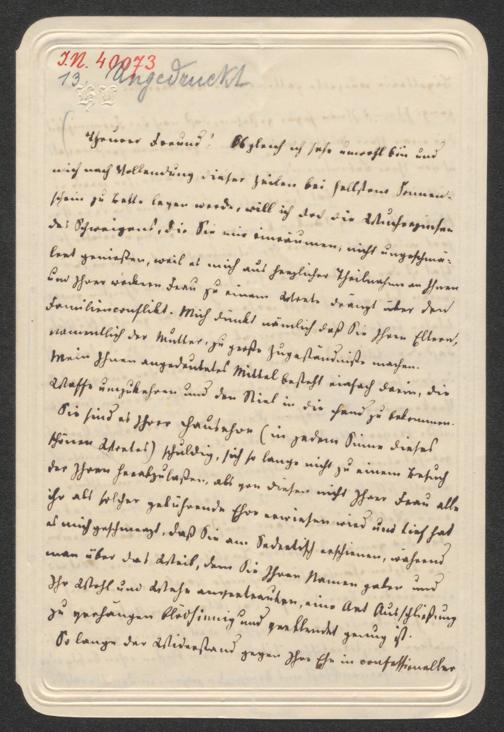 I.N. 40073
13. Ungedruckt
Theurer Freund! Obgleich ich sehr unwohl bin und
mich nach Vollendung dieser Zeilen bei hellstem Sonnen-
schein zu Bette legen werde, will ich doch die Wucherzinsen
des Schweigens, die Sie mir einräumen, nicht ungeschmä-
lert genießen, weil es mich aus herzlicher Theilnahme an Ihnen
und Ihrer wackern Frau zu einem Worte drängt über den
Familienconflikt. Mich dünkt nämlich daß Sie Ihren Eltern,
namentlich der Mutter, zu große Zugeständniße machen.
Mein Ihnen angedeutetes Mittel besteht einfach darin, die
Waffe umzukehren und den Stiel in die Hand zu bekommen.
Sie sind es Ihrer Hausehre (in jedem Sinne dieses
schönen Wortes) schuldig, sich so lange nicht zu einem Besuch
der Ihren herabzulaßen, als von diesen nicht Ihrer Frau alle
ihr als solcher gebührende Ehre erwiesen wird und tief hat
es mich geschmerzt, daß Sie am Sedertisch erschienen, während
man über das Weib, dem Sie Ihren Namen gaben und
Ihr Wohl und Wehe anvertrauten, eine Art Ausschließung
zu verhängen blödsinnig und verblendet genug ist.
So lange der Widerstand gegen Ihre Ehe in confessioneller